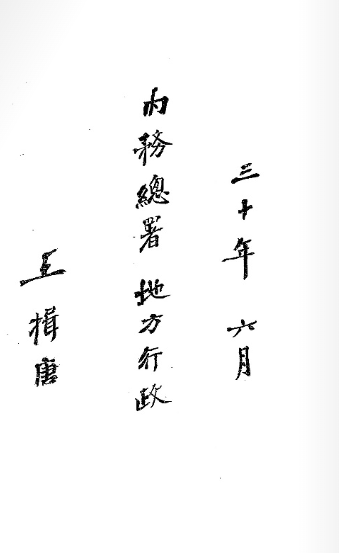 三十年 六月
内務總署 地方行政
王揖唐